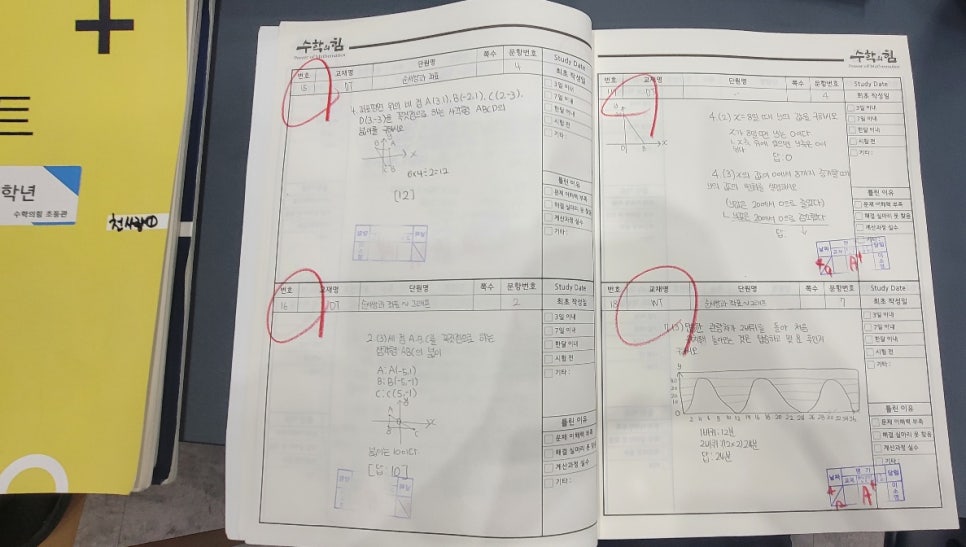 학년
수학의힘 초등관
수학의힘
Power of Mathematics
번호 교재명 단원명 쪽수 문항번호 Study Date
15 DT 순서쌍과 좌표 4 최초 작성일
3일 이내
7일 이내
한달 이내
시험 전
기타:
4. 좌표평면 위의 네 점 A(3,1), B(-2,1), C(2-3),
D(3,-3)을 꼭짓점으로 하는 사각형 ABCD의
넓이를 구하시오
6×4÷2=12
[12]
틀린 이유
문제 이해력 부족
해결 실마리 못 찾음
계산과정 실수
기타:
번호 교재명 단원명 쪽수 문항번호 Study Date
16 DT 순서쌍과 좌표~그래프 2 최초 작성일
3일 이내
7일 이내
한달 이내
시험 전
기타:
2.(3) 세 점 A, B, C를 꼭짓점으로 하는
삼각형 ABC의 넓이
A: A(-5,1)
B: B(-5,-1)
C: C(5,-1)
넓이는 10이다
[답: 10]
틀린 이유
문제 이해력 부족
해결 실마리 못 찾음
계산과정 실수
기타:
수학의힘
Power of Mathematics
교재명 단원명 쪽수 문항번호 Study Date
DT 4 최초 작성일
3일 이내
7일 이내
한달 이내
시험 전
기타:
4.(2) x=8일 때 y의 값을 구하시오
x가 8일 때 y는 0이다
답: 0
4.(3) x의 값이 0에서 8까지 증가할 때
y의 값의 변화를 설명하시오
(y값은 20에서 0으로 줄었다)
y값은 20에서 0으로 줄었다
답:
틀린 이유
문제 이해력 부족
해결 실마리 못 찾음
계산과정 실수
기타:
날짜 평가 담임
A+
번호 교재명 단원명 쪽수 문항번호 Study Date
18 WT 순서쌍과 좌표~그래프 7 최초 작성일
3일 이내
7일 이내
한달 이내
시험 전
기타:
관람차가 2바퀴를 돌아 처음
y
2 4 6 8 10 12 14 16 18 20 22 24 26 28 30 32 34 36
1바퀴: 12분
2바퀴: 12×2=24분
답: 24분
틀린 이유
문제 이해력 부족
해결 실마리 못 찾음
계산과정 실수
기타
날짜 평가 담임
A+